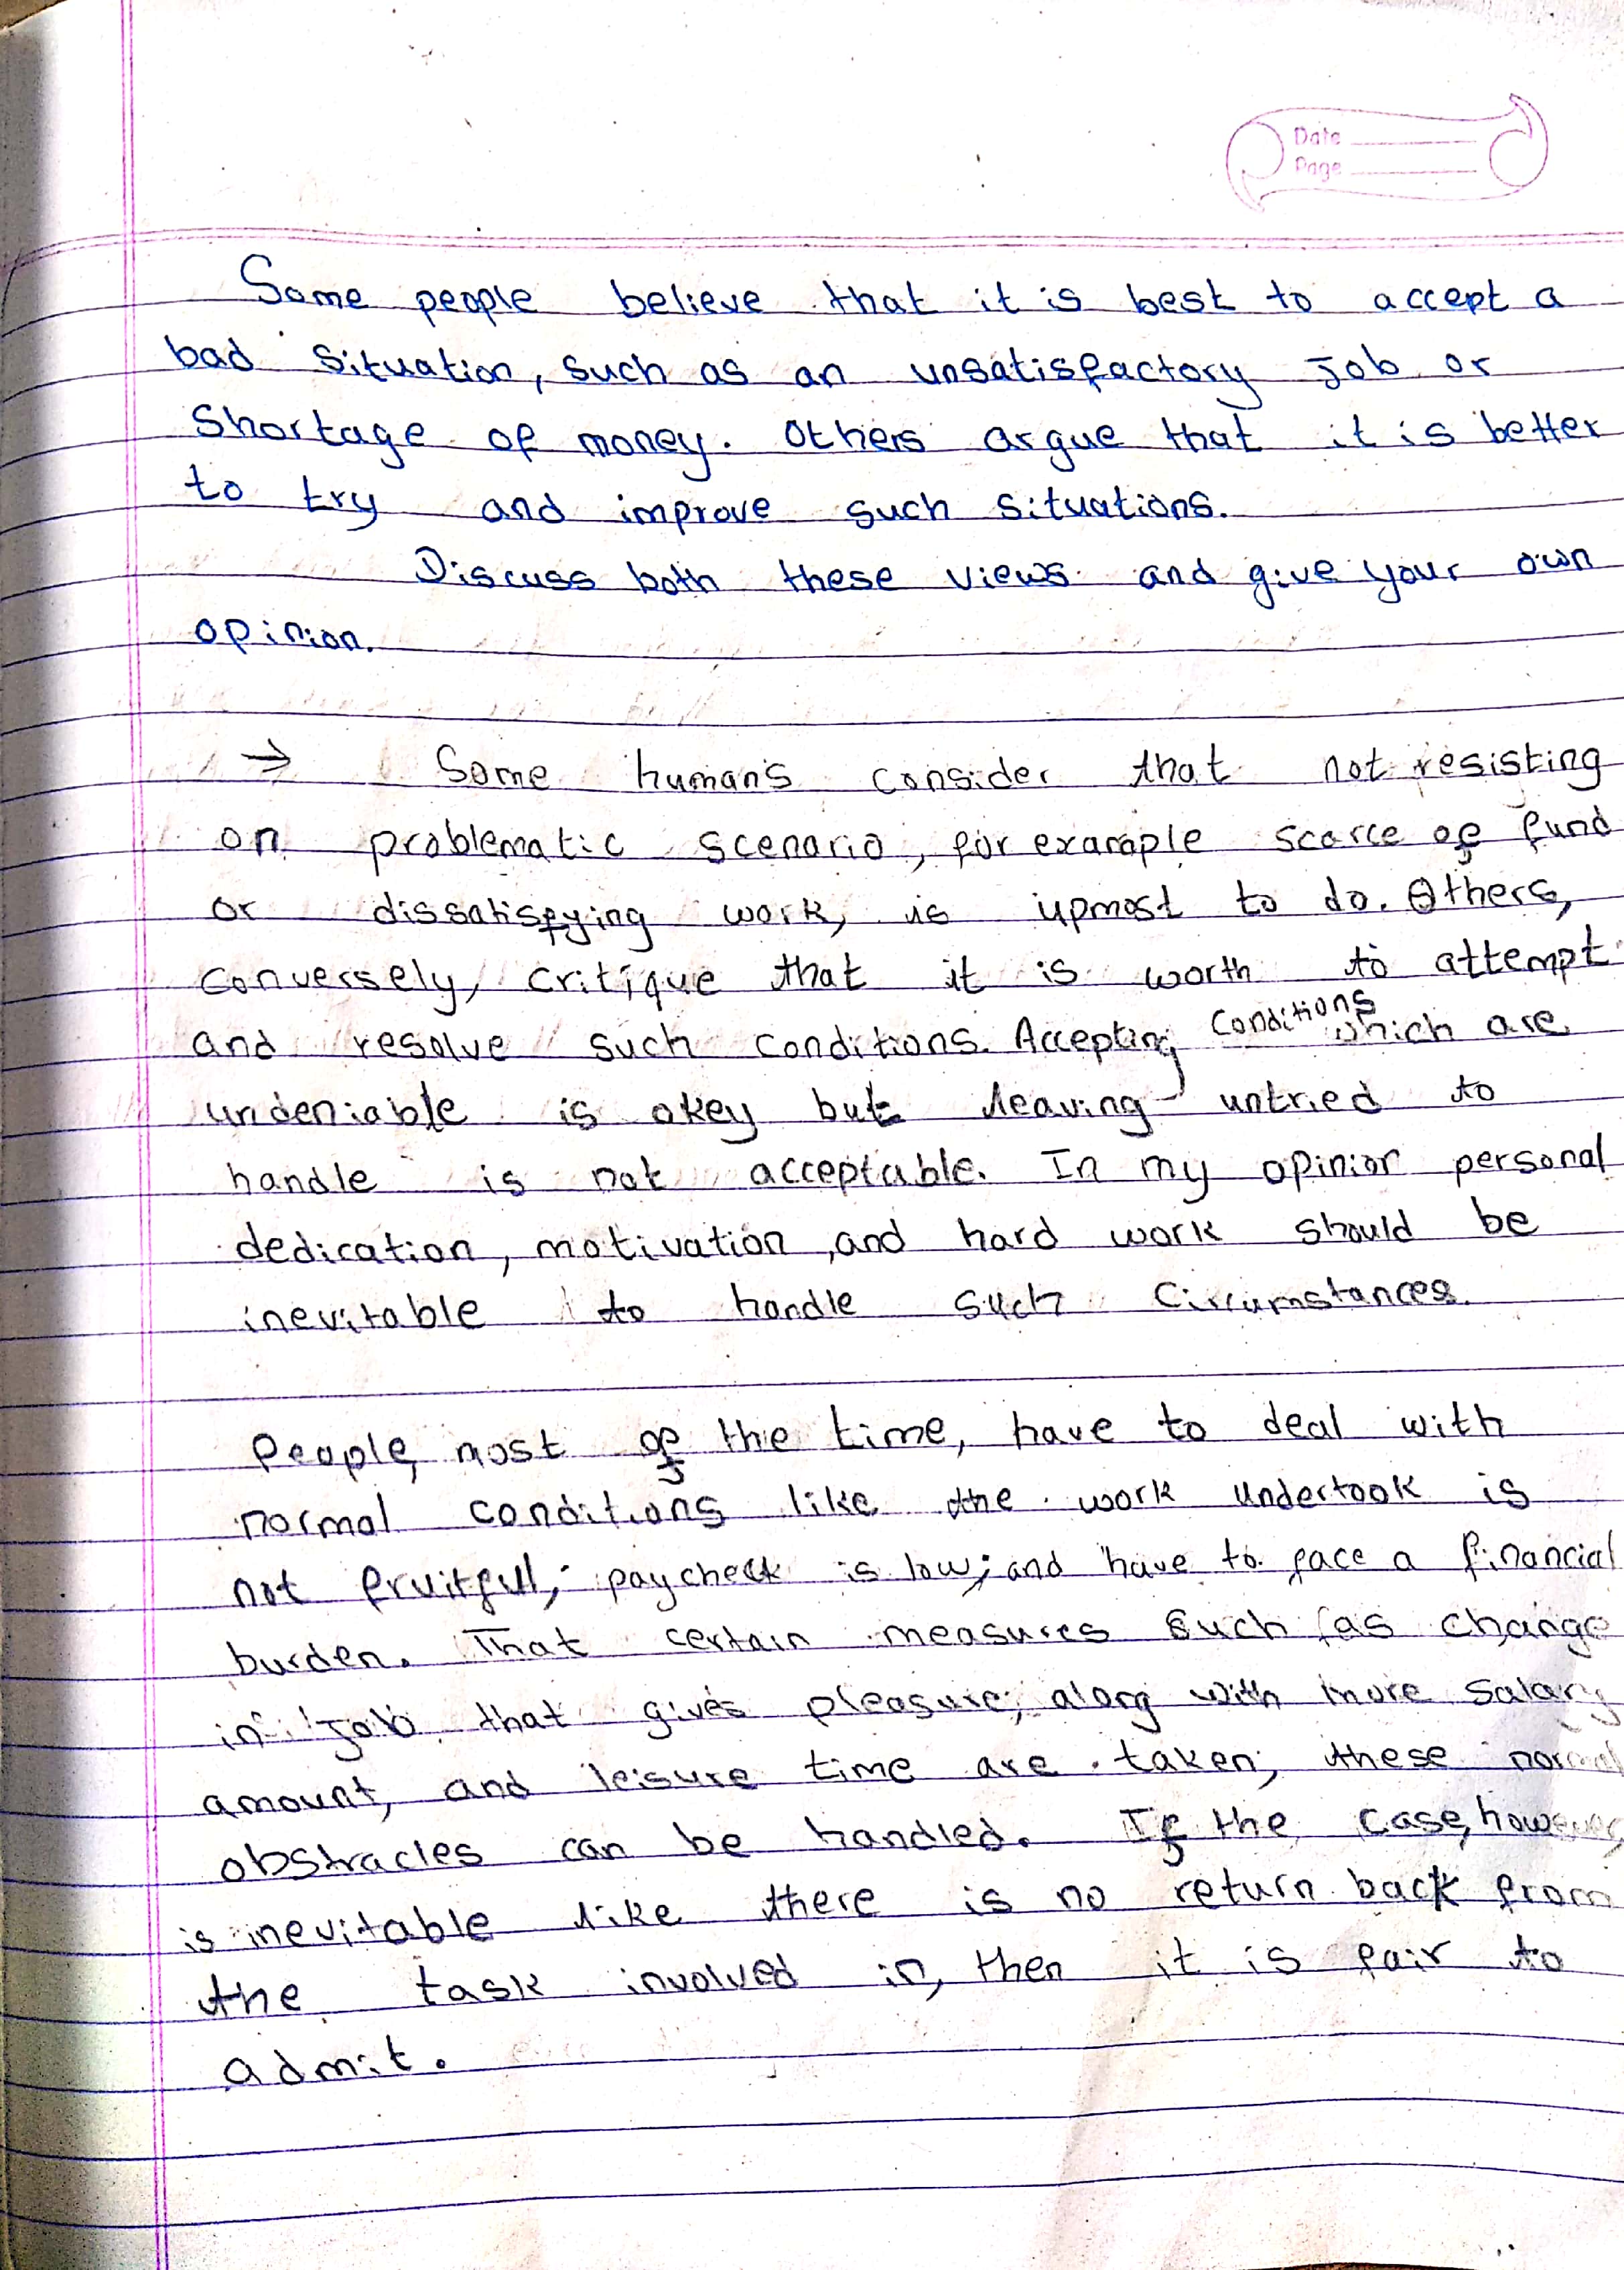 Date
Page
Some people believe that it is best to accept a
bad situation, such as an unsatisfactory job or
shortage of money. Others argue that it is better
to try and improve such situations.
Discuss both these views and give your own
opinion.
→ Some humans consider that not resisting
on problematic scenario, for example scarce of fund
or dissatisfying work, is upmost to do. Others,
conversely, critique that it is worth to attempt
and resolve such conditions. Accepting conditions which are
undeniable is okey but leaving untried to
handle is not acceptable. In my opinion personal
dedication, motivation, and hard work should be
inevitable to handle such circumstances.
People, most of the time, have to deal with
normal conditions like the work undertook is
not fruitful; paycheck is low; and have to face a financial
burden. That certain measures such as change
in job that gives pleasure, along with more salary
amount, and leisure time are taken, these normal
obstracles can be handled. If the case, however,
is inevitable like there is no return back from
the task involved in, then it is fair to
admit.